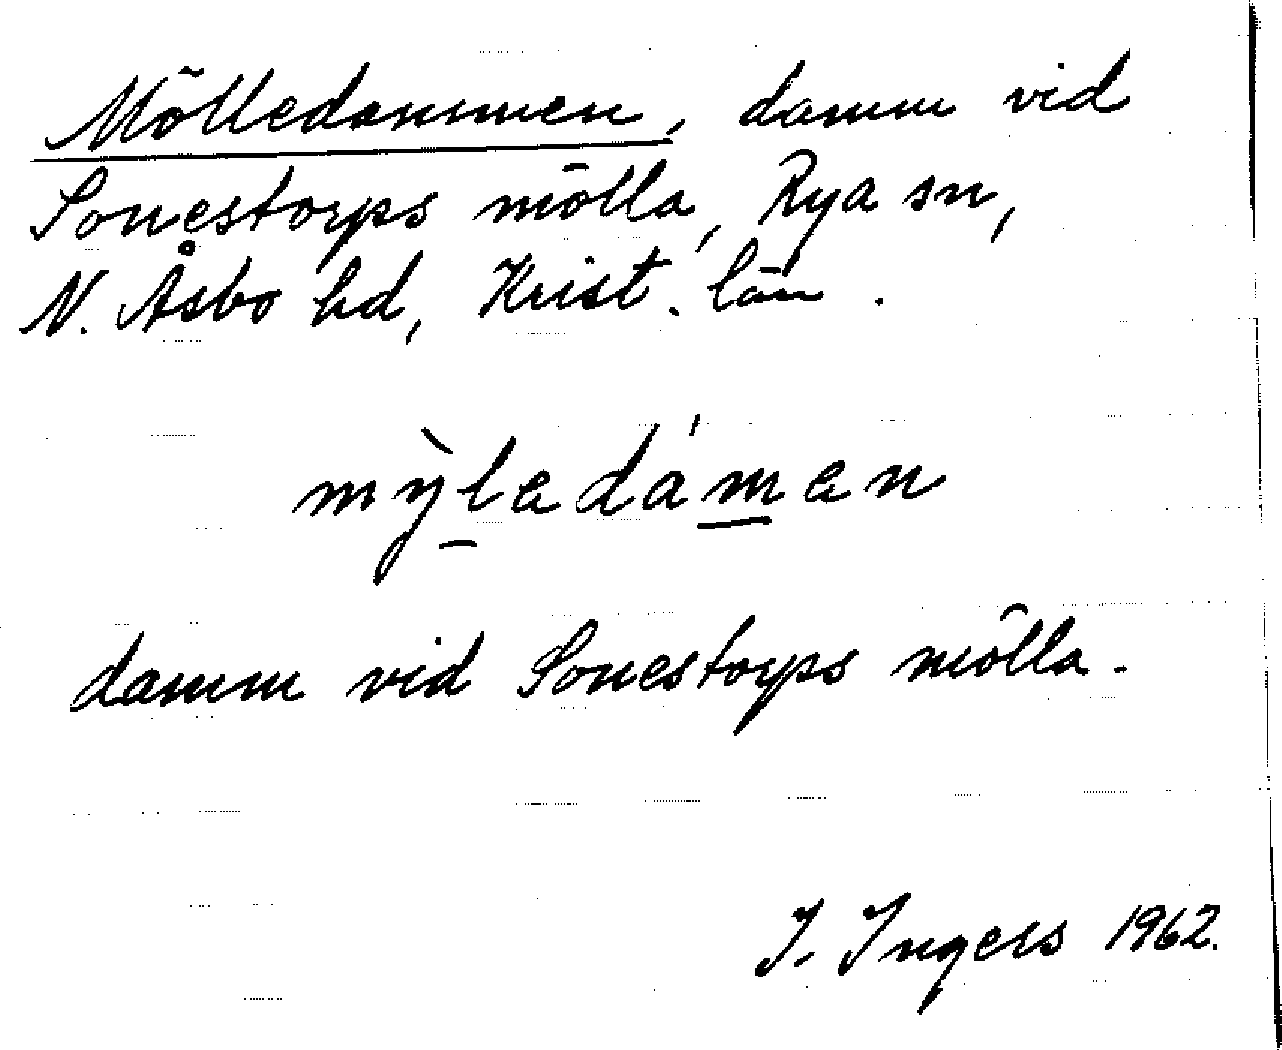 Mölledammen, damm vid
Sonestorps mölla, Rya sn,
N. Åsbo hd, Krist. län.
mỳḻadám̲an
damm vid Sonestorps mölla.
I. Ingers 1962.